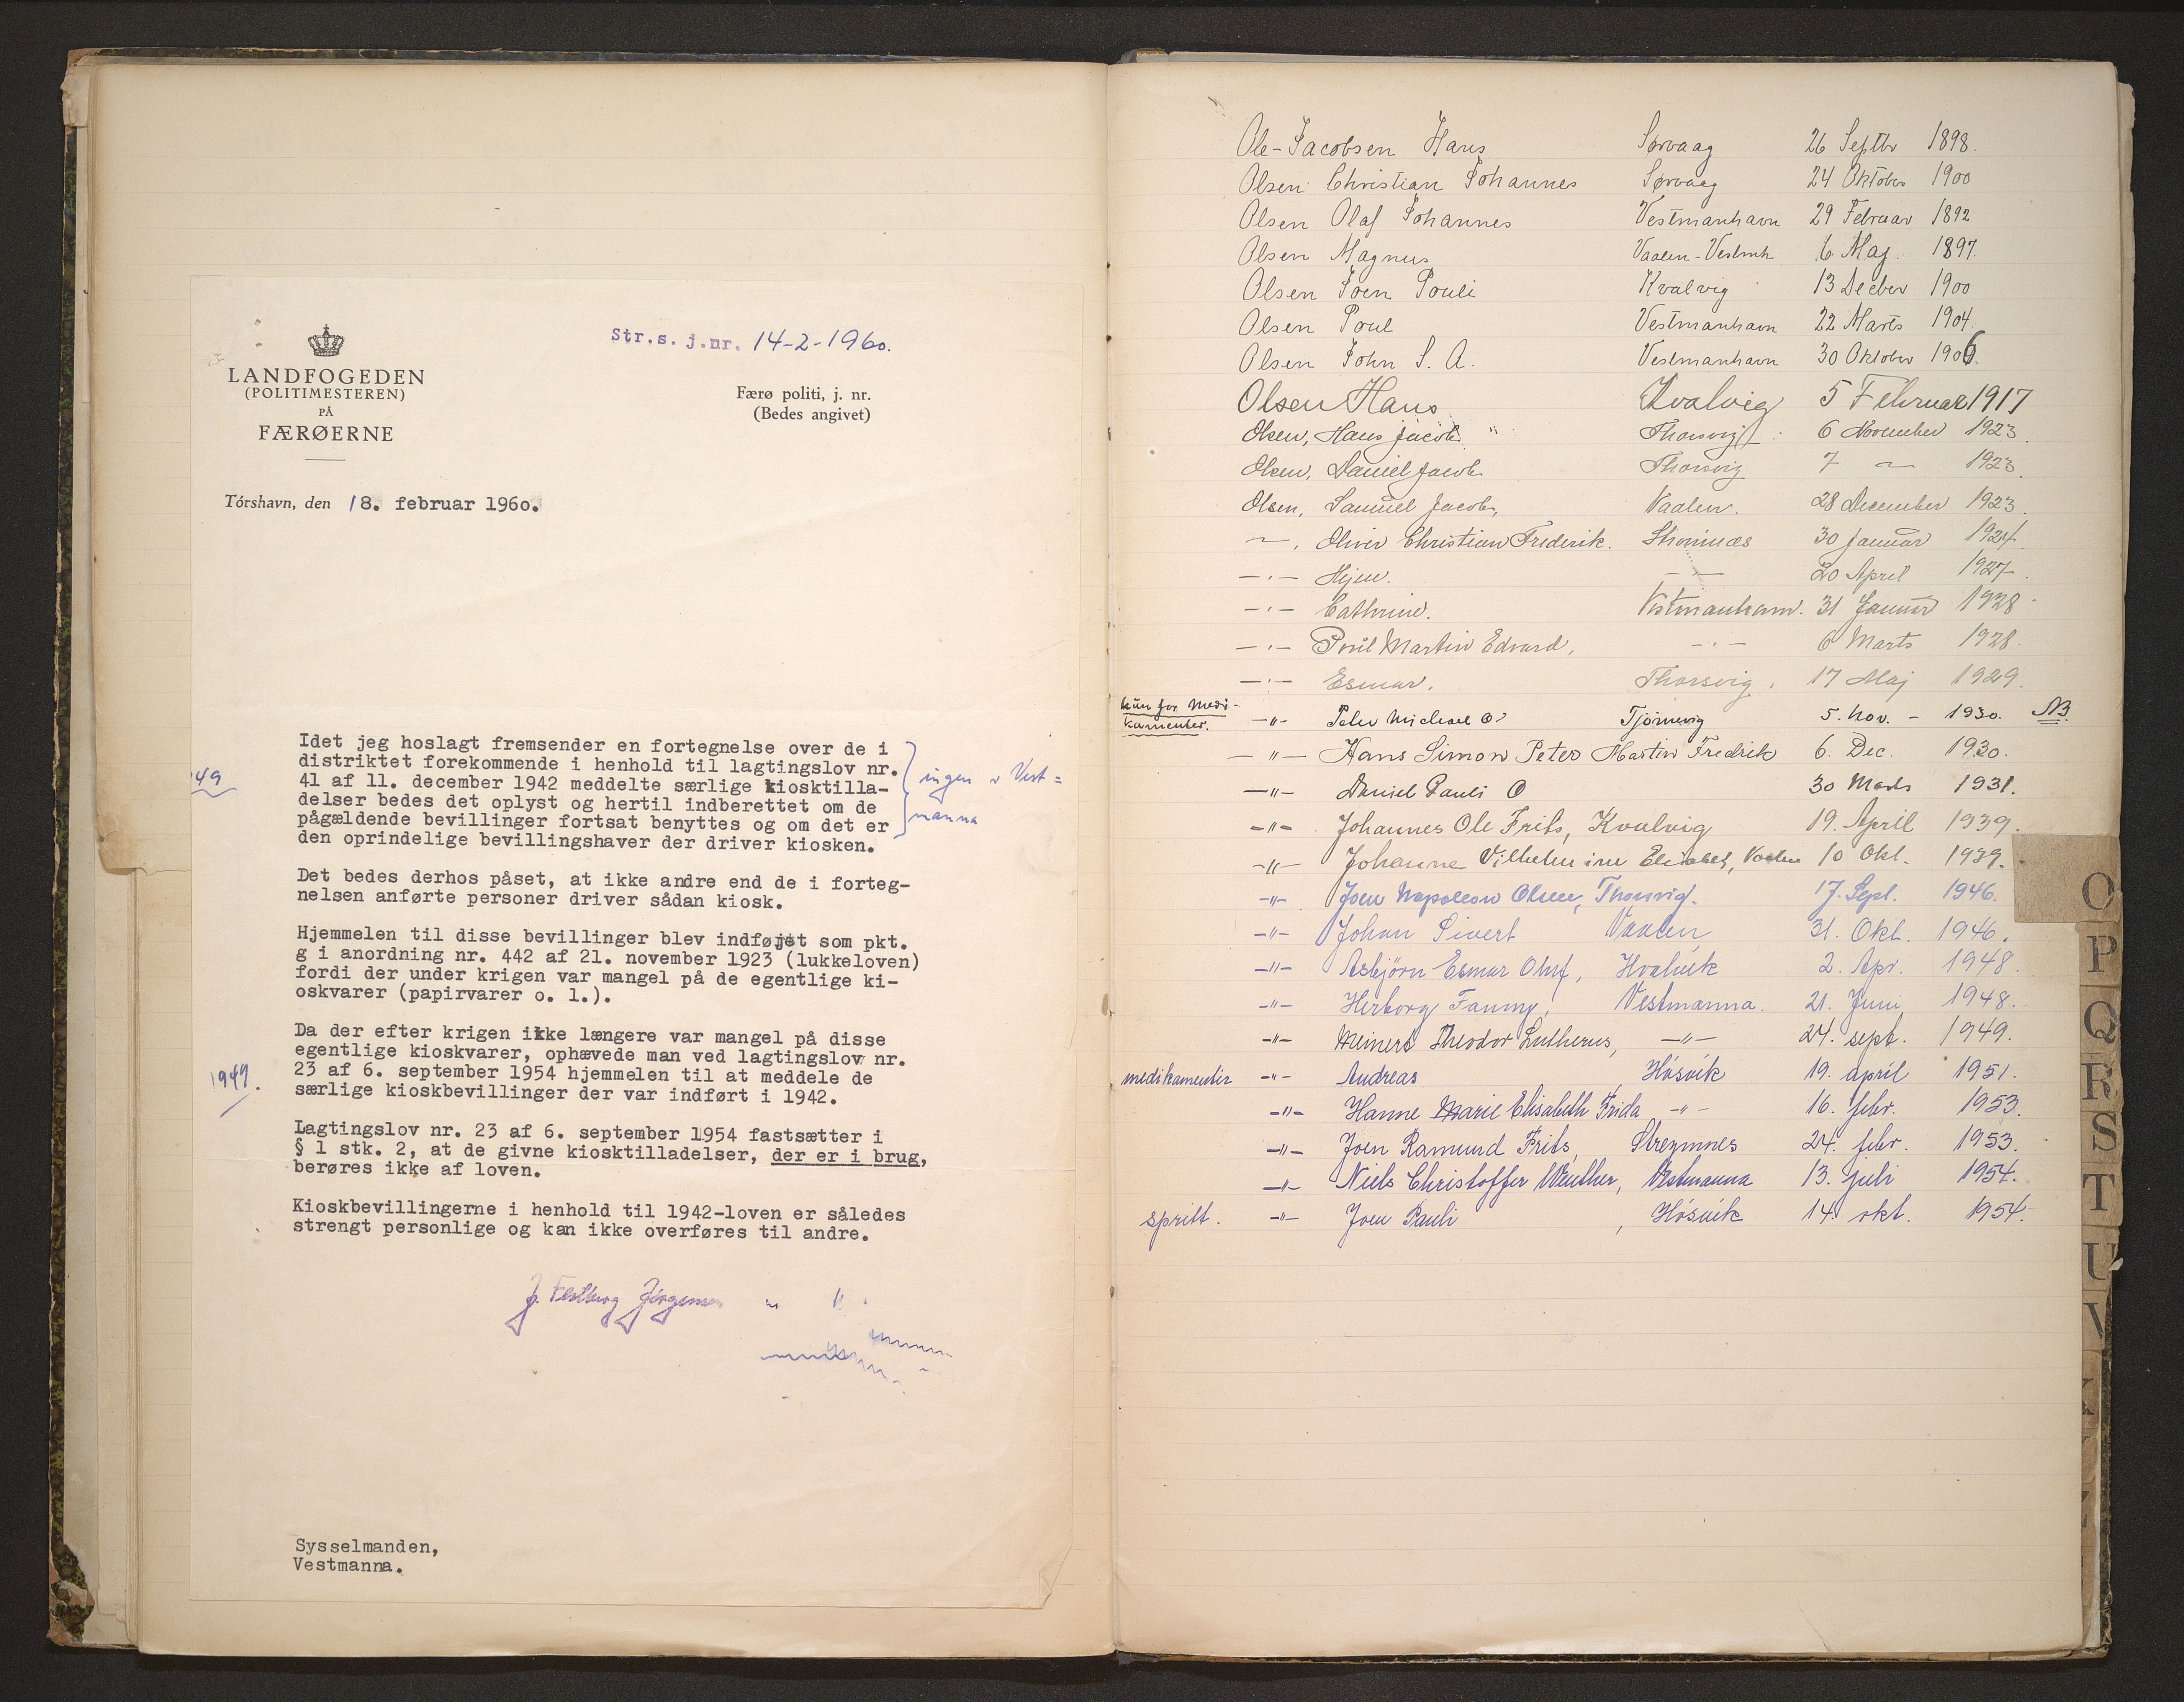 Str.s. j.nr. 14-2-1960.
LANDFOGEDEN
(POLITIMESTEREN)
PÅ
FÆRØERNE
Færø politi, j. nr.
(Bedes angivet)
Tórshavn, den 18. februar 1960.
Idet jeg hoslagt fremsender en fortegnelse over de i
distriktet forekommende i henhold til lagtingslov nr.
41 af 11. december 1942 meddelte særlige kiosktilla-
delser bedes det oplyst og hertil indberettet om de
pågældende bevillinger fortsat benyttes og om det er
den oprindelige bevillingshaver der driver kiosken.
49
ingen v Vest=
manna
Det bedes derhos påset, at ikke andre end de i forteg-
nelsen anførte personer driver sådan kiosk.
Hjemmelen til disse bevillinger blev indføjet som pkt.
g i anordning nr. 442 af 21. november 1923 (lukkeloven)
fordi der under krigen var mangel på de egentlige ki-
oskvarer (papirvarer o. l.).
Da der efter krigen ikke længere var mangel på disse
egentlige kioskvarer, ophævede man ved lagtingslov nr.
23 af 6. september 1954 hjemmelen til at meddele de
særlige kioskbevillinger der var indført i 1942.
1949.
Lagtingslov nr. 23 af 6. september 1954 fastsætter i
§ 1 stk. 2, at de givne kiosktilladelser, der er i brug,
berøres ikke af loven.
Kioskbevillingerne i henhold til 1942-loven er således
strengt personlige og kan ikke overføres til andre.
Jørgensen
Sysselmanden,
Vestmanna.
Ole-Jacobsen Hans Sørvaag 26 Septbr 1898.
Olsen Christian Johannes Sørvaag 24 Oktober 1900
Olsen Olaf Johannes Vestmanhavn 29 Februar 1892
Olsen Magnus Vaalen-Vestmh 6 Maj. 1897.
Olsen Joen Pouli Kvalvig 13 Decber 1900
Olsen Poul Vestmanhavn 22 Marts 1904.
Olsen John S. A. Vestmanhavn 30 Oktober 1906.
Olsen Hans Kvalvig 5 Februar 1917
Olsen, Hans Jacob. " Thorsvig 6 November 1923.
Olsen, Daniel Jacob Thorsvig 7 ~ 1923.
Olsen, Samuel Jacob, Vaalen. 28 December 1923.
~, Oliver Christian Frederik. Strømnæs 30 Januar 1924.
—·— Hejen. — — 20 April 1927.
—·— Cathrine. Vestmanhavn. 31 Januar 1928
—·— Poül Martin Edvard, —·— 6 Marts 1928.
—·— Esmar. Thorsvig. 17 Maj 1929.
kün for Medi-
kamenter.
—"— Peter Michael O Tjörnevig 5. Nov. – 1930. NB
—"— Hans Simon Peter Martin Fredrik 6. Dec. 1930.
—"— Daniel Pauli O 30 Marts 1931.
—"— Johannes Ole Frits, Kvalvig 19. April 1939.
—"— Johanne Vilhelmine Elisabet, Vaalen 10 Okt. 1939.
—"— Joen Napoleon Olsen, Thorsvig. 17. Sept. 1946.
—"— Johan Sivert Vaalen 31. Okt. 1946.
—"— Asbjörn Esmar Oluf, Hvalvík 2. Apr. 1948.
—"— Herborg Fanny, Vestmanna. 21. Juni 1948.
—"— Meinert Theodor Lutherus, —"— 24. sept. 1949.
medikamenter —"— Andreas, Hósvík 19. apríl 1951.
—"— Hanne Marie Elisabeth Frida —"— 16. febr. 1953.
—"— Joen Ramund Frits, Streymnes 24. febr. 1953.
—"— Niels Christoffer Wenther, Vestmanna 13. juli 1954.
spritt. —"— Joen Pauli, Hósvík 14. okt. 1954.
O
P
Q
R
S
T
U
V